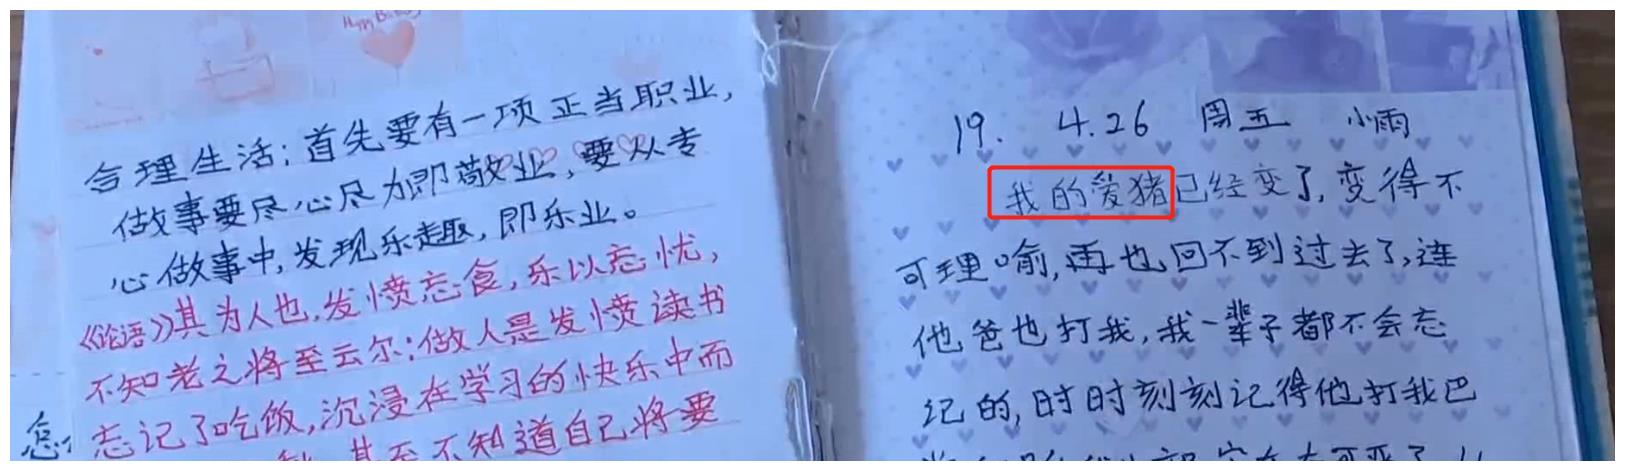 Happy B
合理生活：首先要有一项正当职业，
做事要尽心尽力即敬业，要从专
心做事中，发现乐趣，即乐业。
《论语》其为人也，发愤忘食，乐以忘忧，
不知老之将至云尔：做人是发愤读书
忘记了吃饭，沉浸在学习的快乐中而
甚至不知道自己将要
19. 4.26 周五 小雨
我的爱猪已经变了，变得不
可理喻，再也回不到过去了，连
他爸也打我，我一辈子都不会忘
记的，时时刻刻记得他打我巴